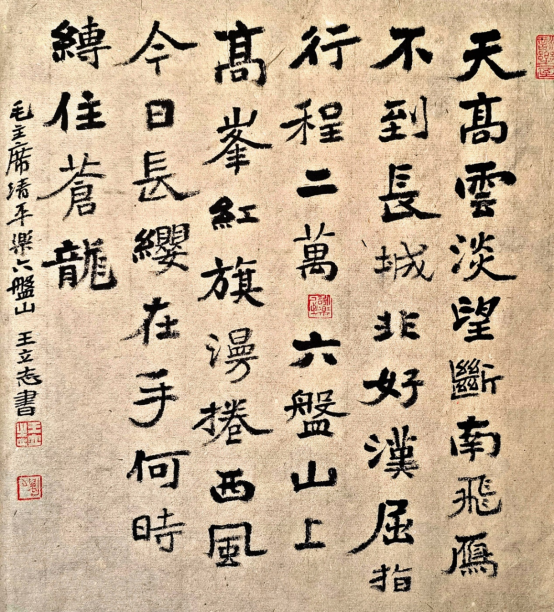 天高雲淡望斷南飛鴈
不到長城非好漢屈指
行程二萬六盤山上
高峯紅旗漫捲西風
今日長纓在手何時
縛住蒼龍
毛主席清平樂六盤山 王立志書